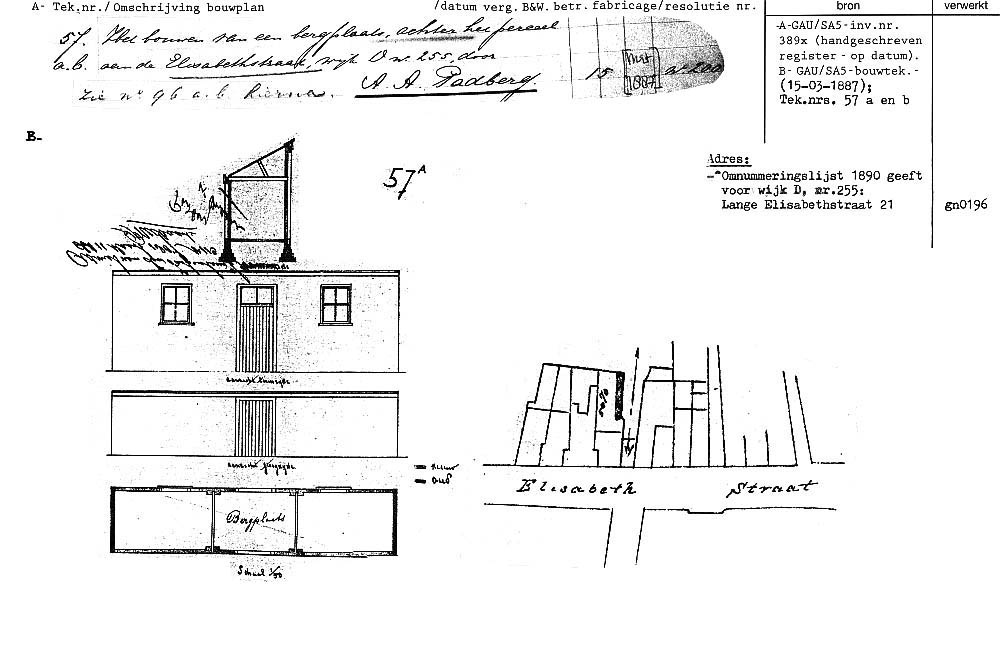 A- Tek.nr./ Omschrijving bouwplan /datum verg. B&W. betr. fabricage/resolutie nr. bron verwerkt
57. Het bouwen van een bergplaats, achter het perceel
a.b. aan de Elisabethstraat, wijk D nr. 255, door
A. A. Padberg.
zie nº 96 a.b. hierna.
15 Mrt 1887 nº 200
-A-GAU/SA5-inv.nr.
389x (handgeschreven
register - op datum).
B- GAU/SA5-bouwtek.-
(15-03-1887);
Tek.nrs. 57 a en b
B-
57A
Adres:
-*Omnummeringslijst 1890 geeft
voor wijk D, nr.255:
Lange Elisabethstraat 21
gn0196
Nieuw
Oud
Bergplaats
Schaal 1/50
Elisabeth Straat